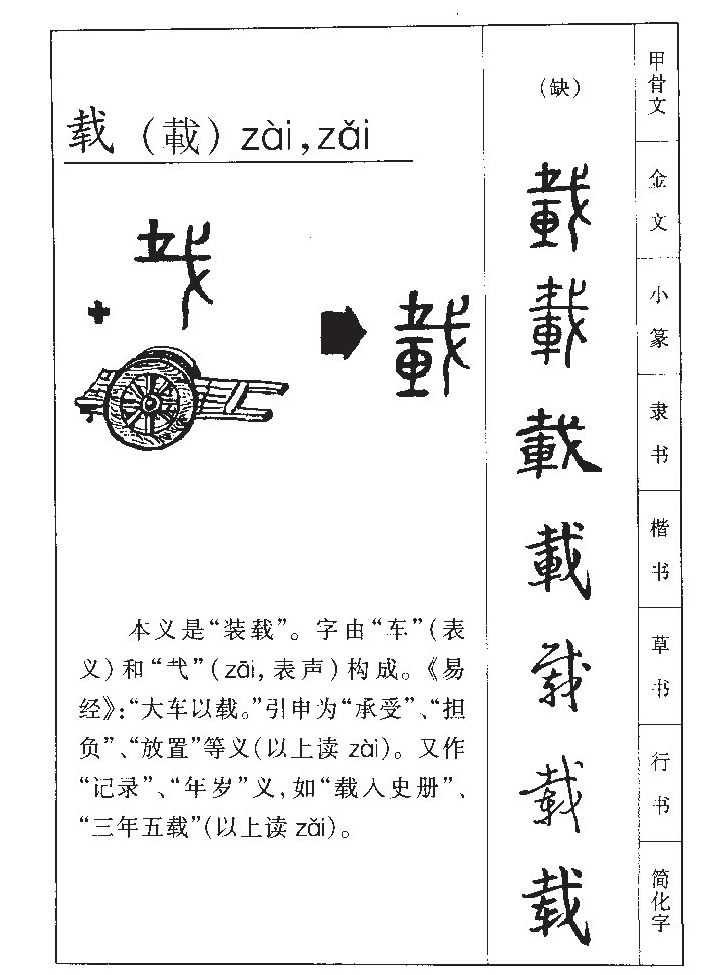 载（載）zài,zǎi
本义是“装载”。字由“车”（表
义）和“𢦏”（zāi,表声）构成。《易
经》：“大车以载。”引申为“承受”、“担
负”、“放置”等义（以上读 zài）。又作
“记录”、“年岁”义，如“载入史册”、
“三年五载”（以上读 zǎi）。
（缺）
載
載
載
載
载
載
载
甲骨文
金文
小篆
隶书
楷书
草书
行书
简化字